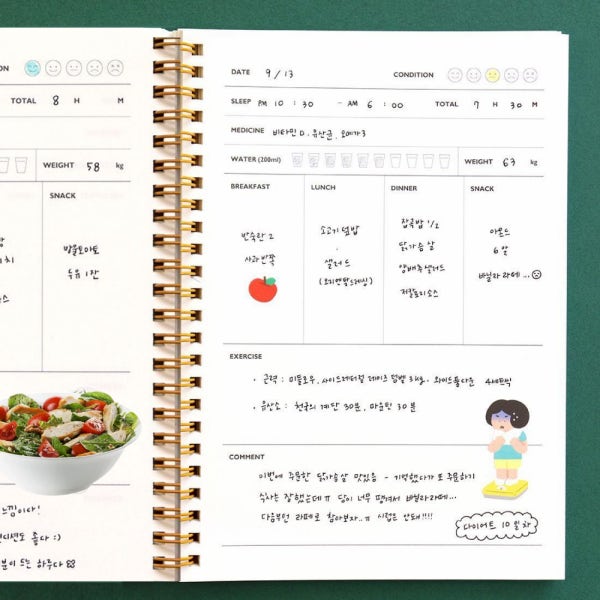 ON
TOTAL 8 H M
WEIGHT 58 kg
SNACK
방울토마토
두유 1잔
느낌이다!
컨디션도 좋다 :)
기분이 드는 하루다
DATE 9/13 CONDITION
SLEEP PM 10 : 30 - AM 6 : 00 TOTAL 7 H 30 M
MEDICINE 비타민 D, 유산균, 오메가3
WATER (200ml) WEIGHT 63 kg
BREAKFAST
반숙란 2
사과 반쪽
LUNCH
소고기 덮밥
샐러드
(오리엔탈드레싱)
DINNER
잡곡밥 1/2
닭가슴살
양배추샐러드
저칼로리소스
SNACK
아몬드
6알
바닐라 라떼...
EXERCISE
· 근력 : 미들로우, 사이드레터럴 레이즈 덤벨 3kg, 와이드풀다운 4세트씩
· 유산소 : 천국의 계단 30분, 마운틴 30분
COMMENT
이번에 주문한 닭가슴살 맛있음 - 기억했다가 또 주문하기
수차는 잘했는데ㅠ 당이 너무 땡겨서 바닐라라떼...
다음부턴 라떼로 참아보자..ㅠ 시럽은 안돼!!!!
다이어트 10일차